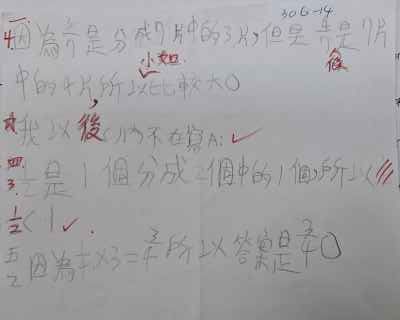 306-14
4. 因為3/7是分成7片中的3片,但是4/7是7片
小如 後
中的4片所以比較大。
我以後 不在算A:✓
四
3. 1/2是1個分成2個中的1個,所以
1/2<1✓.
五
2 因為1/4×3=3/4所以答案是3/4。